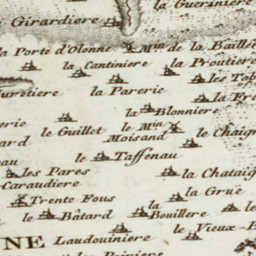 la Gueriniere
Girardiere
la Porte d'Olonne
Min de la Baill
la Cantiniere
la Proutiere
les
la Parerie
la
la Blonniere
le Guillet
le Min
Moisand
le Chaign
le Taffenau
les Pares
la Chataig
Caraudiere
la Grue
Trente Fous
le Bâtard
la Bouillere
le
NE
Laudouiniere
le Vieux